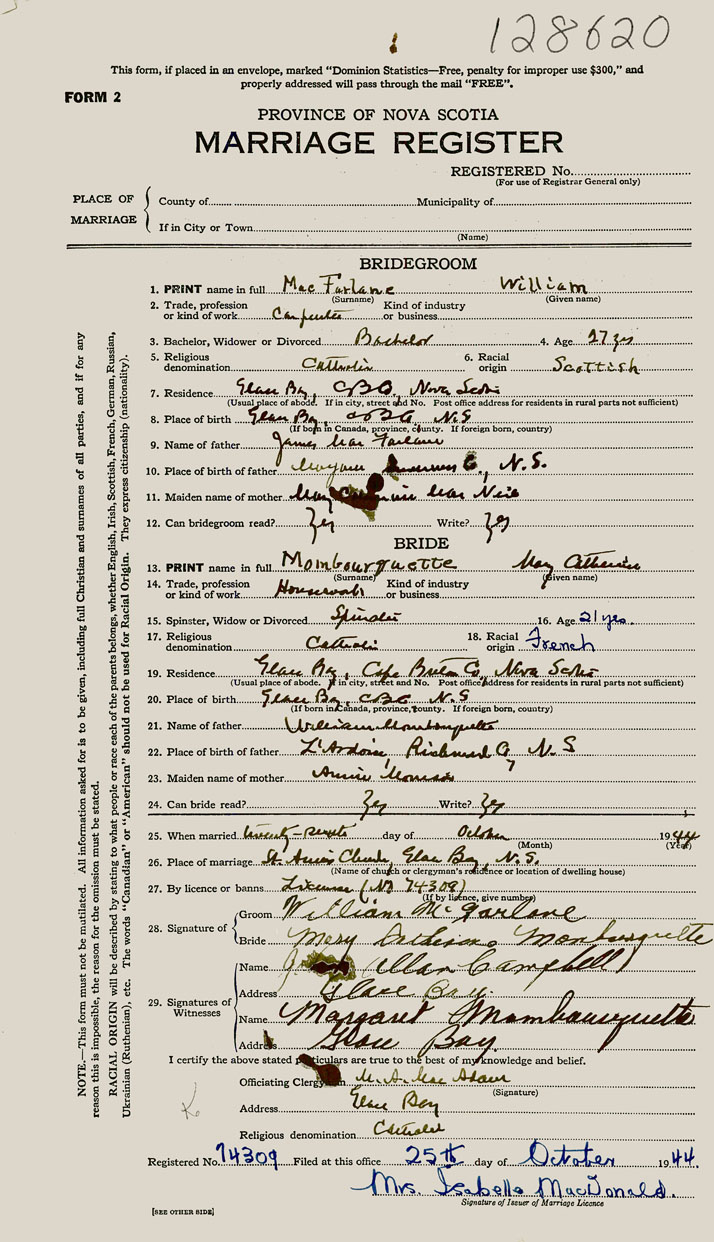 128620
This form, if placed in an envelope, marked "Dominion Statistics—Free, penalty for improper use $300," and
properly addressed will pass through the mail "FREE".
FORM 2
PROVINCE OF NOVA SCOTIA
MARRIAGE REGISTER
REGISTERED No.
(For use of Registrar General only)
PLACE OF MARRIAGE
County of Municipality of
If in City or Town
(Name)
BRIDEGROOM
1. PRINT name in full Mac Farlane William
(Surname) (Given name)
2. Trade, profession or kind of work Carpenter Kind of industry or business
3. Bachelor, Widower or Divorced Bachelor 4. Age 27 yrs
5. Religious denomination Catholic 6. Racial origin Scottish
7. Residence Glace Bay, CBCo, Nova Scotia
(Usual place of abode. If in city, street and No. Post office address for residents in rural parts not sufficient)
8. Place of birth Glace Bay, CBCo, N.S
(If born in Canada, province, county. If foreign born, country)
9. Name of father James Mac Farlane
10. Place of birth of father Inverness Co., N.S.
11. Maiden name of mother Mary Mac Neil
12. Can bridegroom read? Yes Write? Yes
BRIDE
13. PRINT name in full Mombourquette May Catherine
(Surname) (Given name)
14. Trade, profession or kind of work Housework Kind of industry or business
15. Spinster, Widow or Divorced Spinster 16. Age 21 yrs.
17. Religious denomination Catholic 18. Racial origin French
19. Residence Glace Bay, Cape Breton Co, Nova Scotia
(Usual place of abode. If in city, street and No. Post office address for residents in rural parts not sufficient)
20. Place of birth Glace Bay, CBCo N.S
(If born in Canada, province, county. If foreign born, country)
21. Name of father William Mombourquette
22. Place of birth of father L'Ardoise, Richmond Co, N S
23. Maiden name of mother Annie
24. Can bride read? Yes Write? Yes
25. When married day of October 1944
(Month) (Year)
26. Place of marriage St Annes Church, Glace Bay, N.S.
(Name of church or clergyman's residence or location of dwelling house)
27. By licence or banns License (No 74309)
(If by licence, give number)
28. Signature of
Groom William McFarlane
Bride Mary Catherine Mombourquette
29. Signatures of Witnesses
Name Allan Campbell
Address Glace Bay.
Name Margaret Mombourquette
Address Glace Bay.
I certify the above stated particulars are true to the best of my knowledge and belief.
Officiating Clergyman M. A. Mac Adam
(Signature)
Address Glace Bay
Religious denomination Catholic
Registered No. 74309 Filed at this office 25th day of October 1944.
Mrs. Isabelle MacDonald.
Signature of Issuer of Marriage Licence
[SEE OTHER SIDE]
NOTE.—This form must not be mutilated. All information asked for is to be given, including full Christian and surnames of all parties, and if for any
reason this is impossible, the reason for the omission must be stated.
RACIAL ORIGIN will be described by stating to what people or race each of the parents belongs, whether English, Irish, Scottish, French, German, Russian,
Ukrainian (Ruthenian), etc. The words "Canadian" or "American" should not be used for Racial Origin. They express citizenship (nationality).